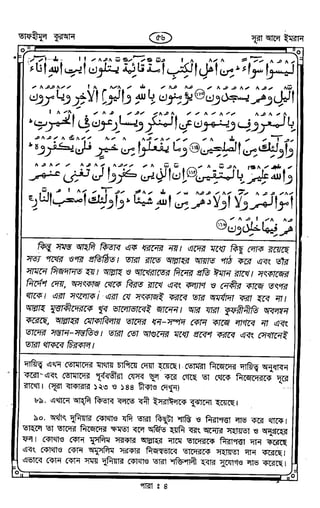 তাফহীমুল কুরআন
৫৬
সূরা আলে ইমরান
لَيْسُوا سَوَاءً ۗ مِنْ أَهْلِ الْكِتَابِ أُمَّةٌ قَائِمَةٌ يَتْلُونَ آيَاتِ اللَّهِ آنَاءَ
اللَّيْلِ وَهُمْ يَسْجُدُونَ ﴿١١٣﴾ يُؤْمِنُونَ بِاللَّهِ وَالْيَوْمِ الْآخِرِ وَيَأْمُرُونَ
بِالْمَعْرُوفِ وَيَنْهَوْنَ عَنِ الْمُنكَرِ وَيُسَارِعُونَ فِي الْخَيْرَاتِ ۖ
وَأُولَٰئِكَ مِنَ الصَّالِحِينَ ﴿١١٤﴾ وَمَا يَفْعَلُوا مِنْ خَيْرٍ فَلَن يُكْفَرُوهُ ۗ
وَاللَّهُ عَلِيمٌ بِالْمُتَّقِينَ ﴿١١٥﴾ إِنَّ الَّذِينَ كَفَرُوا لَن تُغْنِيَ عَنْهُمْ
أَمْوَالُهُمْ وَلَا أَوْلَادُهُم مِّنَ اللَّهِ شَيْئًا ۖ وَأُولَٰئِكَ أَصْحَابُ النَّارِ ۚ
هُمْ فِيهَا خَالِدُونَ ﴿١١٦﴾
কিন্তু সমস্ত আহলি কিতাব এক ধরনের নয়। এদের মধ্যে কিছু লোক রয়েছে
সত্য পথের ওপর প্রতিষ্ঠিত। তারা রাতে আল্লাহর আয়াত পাঠ করে এবং তাঁর
সামনে সিজদানত হয়। আল্লাহ ও আখেরাতের দিনের প্রতি ঈমান রাখে। সৎকাজের
নির্দেশ দেয়, অসৎকাজ থেকে বিরত রাখে এবং কল্যাণ ও নেকীর কাজে তৎপর
থাকে। এরা সৎলোক। এরা যে সৎকাজই করবে তার অমর্যাদা করা হবে না।
আল্লাহ মুত্তাকীদেরকে খুব ভালোভাবেই জানেন। আর যারা কুফরীনীতি অবলম্বন
করেছে, আল্লাহর মোকাবিলায় তাদের ধন-সম্পদ কোন কাজে লাগবে না এবং
তাদের সন্তান-সন্ততিও। তারা তো আগুনের মধ্যে প্রবেশ করবে এবং সেখানেই
তারা থাকবে চিরকাল।
দায়িত্ব এখন তোমাদের মাথায় চাপিয়ে দেয়া হয়েছে। তোমরা নিজেদের দায়িত্ব অনুধাবন
করো এবং তোমাদের পূর্ববর্তীরা যেসব ভুল করে গেছে তা থেকে নিজেদেরকে দূরে
রাখো। (সূরা বাকারার ১২৩ ও ১৪৪ টীকাও দেখুন)
৮৯. এখানে আহলি কিতাব বলতে বনী ইসরাঈলকে বুঝানো হয়েছে।
৯০. অর্থাৎ দুনিয়ার কোথাও যদি তারা কিছুটা শান্তি ও নিরাপত্তা লাভ করে থাকে।
তাহলে তা তাদের নিজেদের ক্ষমতা বলে অর্জিত হয়নি বরং অন্যের সহায়তা ও অনুগ্রহের
ফল। কোথাও কোন মুসলিম সরকার আল্লাহর নামে তাদেরকে নিরাপত্তা দান করেছে
এবং কোথাও কোন অমুসলিম সরকার নিজস্বভাবে তাদেরকে সহায়তা দান করেছে।
এভাবে কোন কোন সময় দুনিয়ার কোথাও তারা শক্তিশালী হবার সুযোগও লাভ করেছে।
পারা : ৪